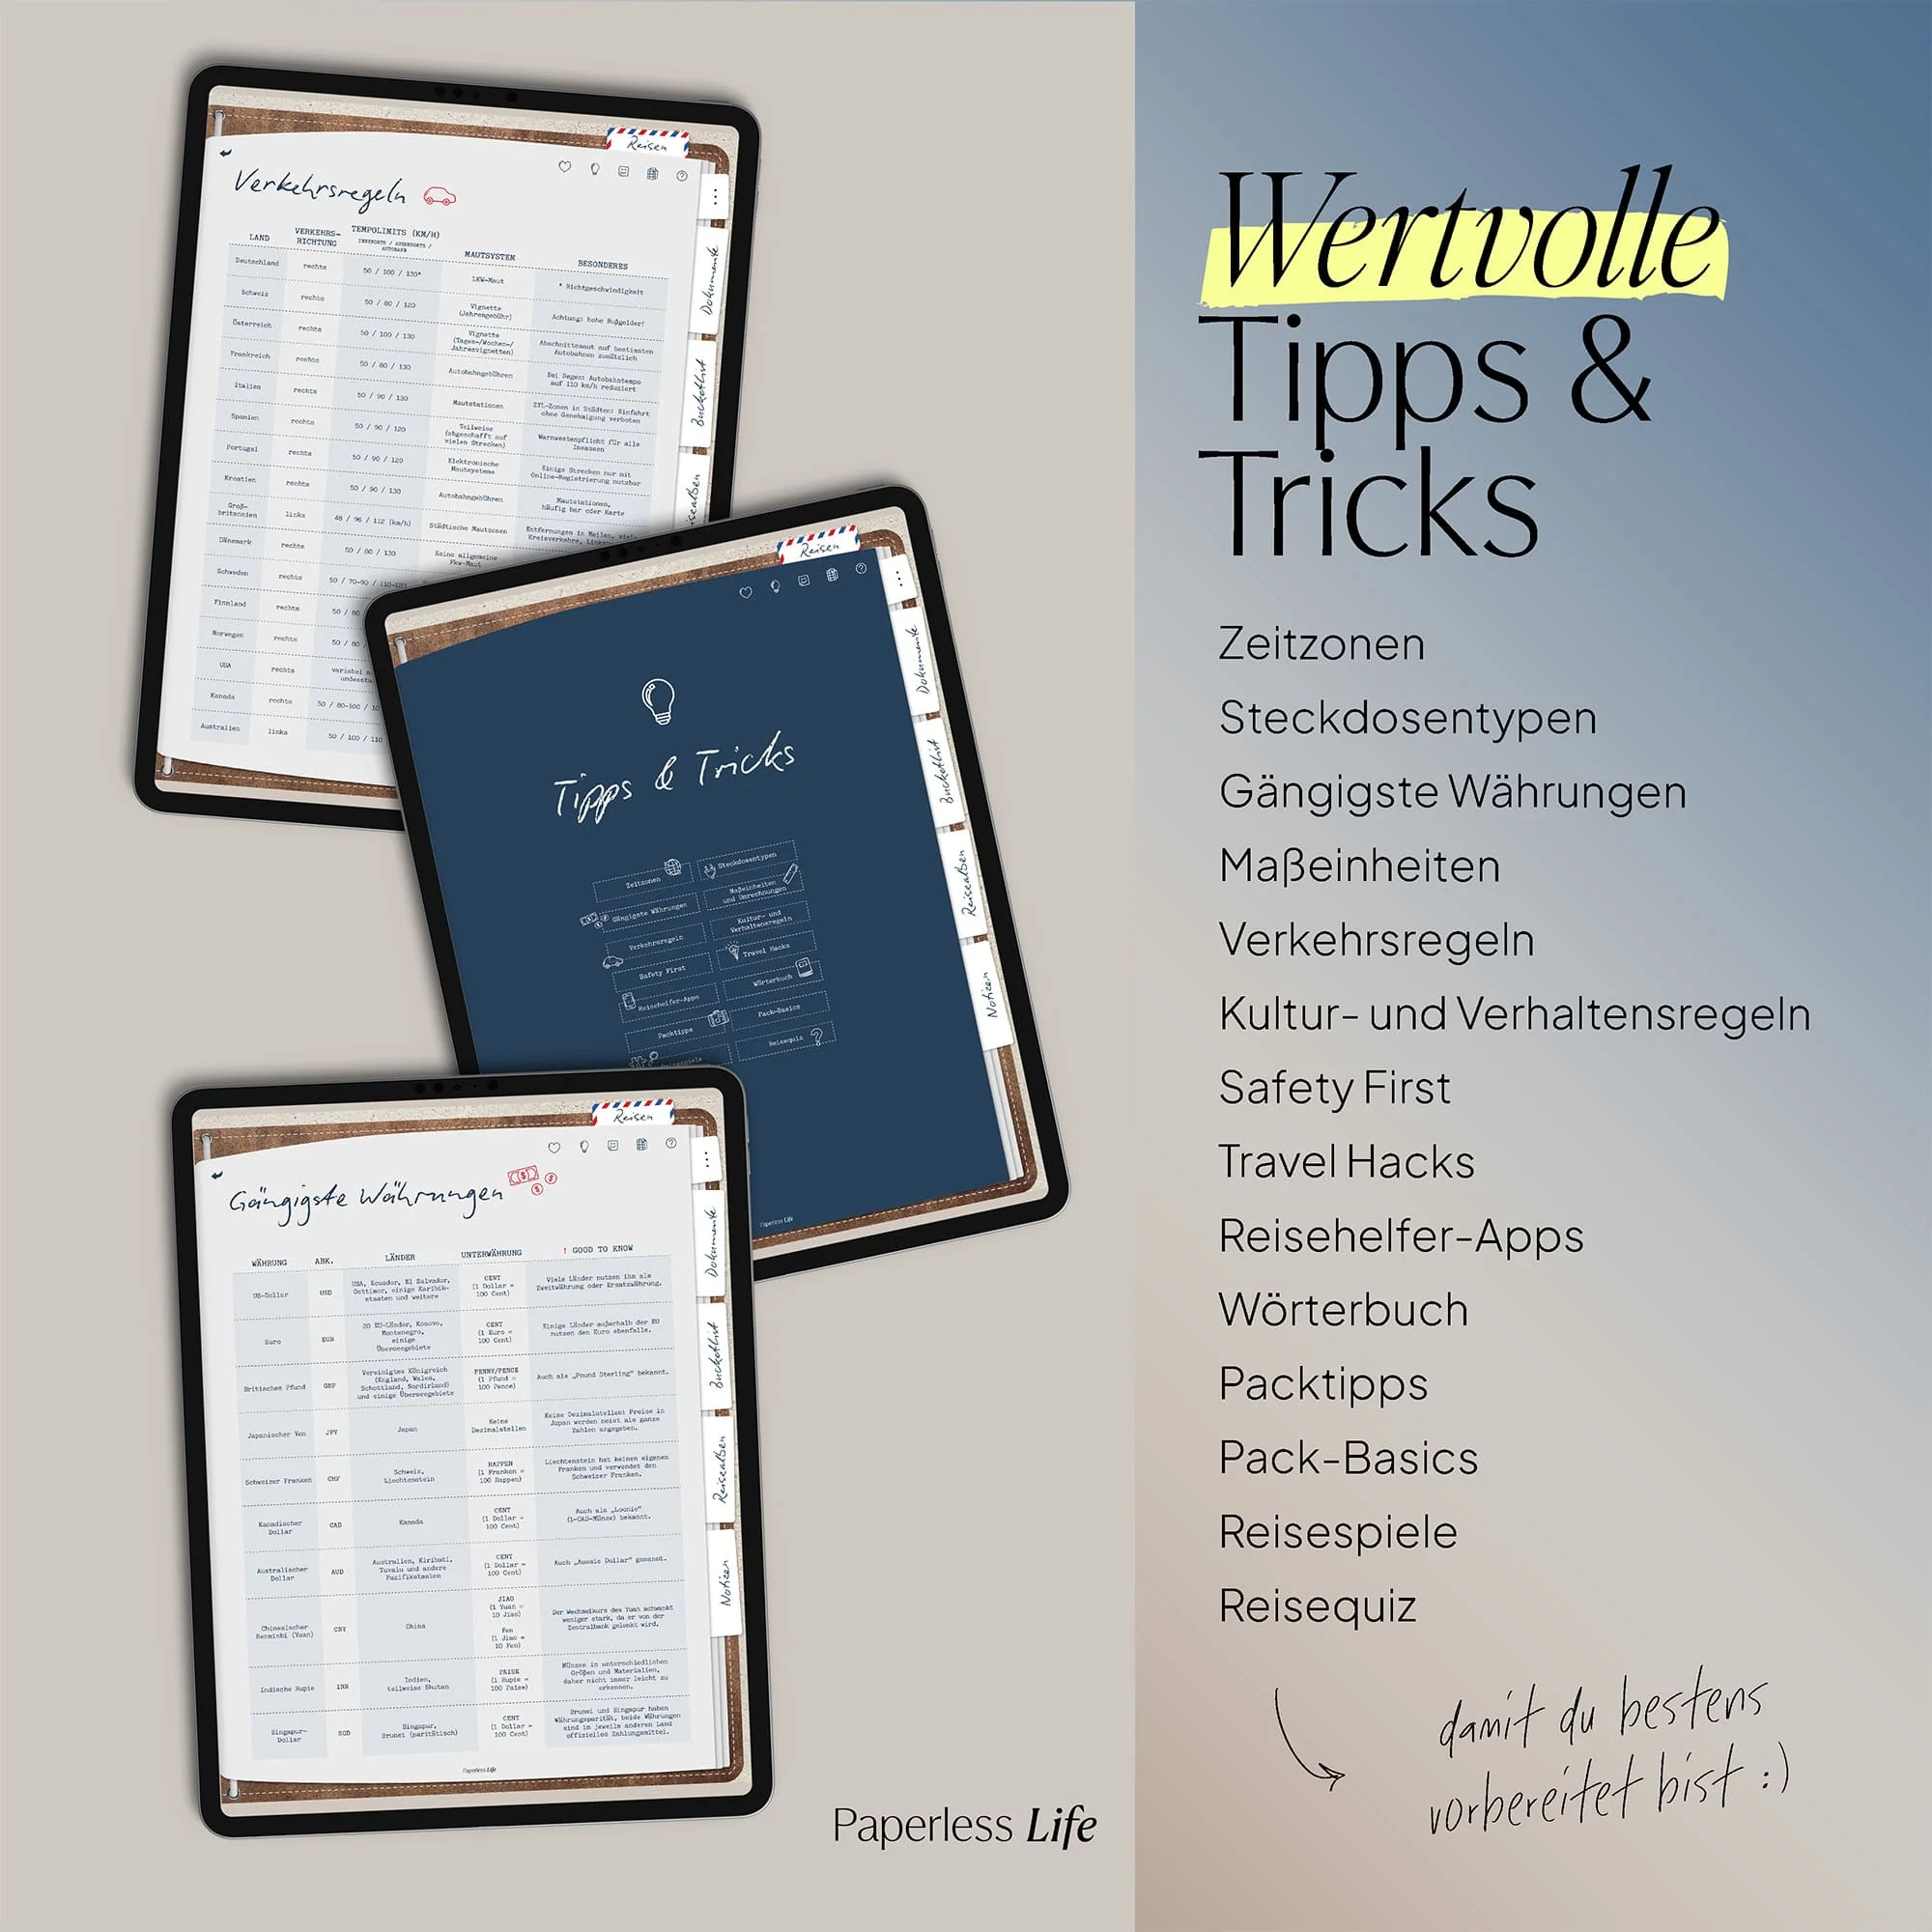 Reisen
Verkehrsregeln
LAND
VERKEHRS-
RICHTUNG
TEMPOLIMITS (KM/H)
INNERORTS / AUSSERORTS /
AUTOBAHN
MAUTSYSTEM
BESONDERES
Deutschland rechts 50 / 100 / 130* LKW-Maut * Richtgeschwindigkeit
Schweiz rechts 50 / 80 / 120 Vignette
(Jahresgebühr) Achtung: hohe Bußgelder!
Österreich rechts 50 / 100 / 130 Vignette
(Tages-/Wochen-/
Jahresvignetten)
Abschnittsmaut auf bestimmten
Autobahnen zusätzlich
Frankreich rechts 50 / 80 / 130 Autobahngebühren
Bei Regen: Autobahntempo
auf 110 km/h reduziert
Italien rechts 50 / 90 / 130 Mautstationen
ZTL-Zonen in Städten: Einfahrt
ohne Genehmigung verboten
Spanien rechts 50 / 90 / 120 Teilweise
(abgeschafft auf
vielen Strecken)
Warnwestenpflicht für alle
Insassen
Portugal rechts 50 / 90 / 120 Elektronische
Mautsysteme
Einige Strecken nur mit
Online-Registrierung nutzbar
Kroatien rechts 50 / 90 / 130 Autobahngebühren
Mautstationen,
häufig bar oder Karte
Groß-
britannien links 48 / 96 / 112 (km/h) Städtische Mautzonen
Entfernungen in Meilen, viele
Kreisverkehre,
Dänemark rechts 50 / 80 / 130 Keine allgemeine
Pkw-Maut
Schweden rechts 50 / 70-90 / 110-120
Finnland rechts 50 / 80
Norwegen rechts 50 / 80
USA rechts variabel
Kanada rechts 50 / 80-100 / 10
Australien links 50 / 100 / 110
Dokumente
Bucketlist
Reisen
Tipps & Tricks
Zeitzonen
Steckdosentypen
Gängigste Währungen
Maßeinheiten
und Umrechnungen
Verkehrsregeln
Kultur- und
Verhaltensregeln
Safety First
Travel Hacks
Reisehelfer-Apps
Wörterbuch
Packtipps
Pack-Basics
Reisequiz
Dokumente
Bucketlist
Reisealben
Notizen
Paperless Life
Reisen
Gängigste Währungen
WÄHRUNG ABK. LÄNDER UNTERWÄHRUNG ! GOOD TO KNOW
US-Dollar USD
USA, Ecuador, El Salvador,
Osttimor, einige Karibik-
staaten und weitere
CENT
(1 Dollar =
100 Cent)
Viele Länder nutzen ihn als
Zweitwährung oder Ersatzwährung.
Euro EUR
20 EU-Länder, Kosovo,
Montenegro,
einige
Überseegebiete
CENT
(1 Euro =
100 Cent)
Einige Länder außerhalb der EU
nutzen den Euro ebenfalls.
Britisches Pfund GBP
Vereinigtes Königreich
(England, Wales,
Schottland, Nordirland)
und einige Überseegebiete
PENNY/PENCE
(1 Pfund =
100 Pence)
Auch als „Pound Sterling" bekannt.
Japanischer Yen JPY Japan
Keine
Dezimalstellen
Keine Dezimalstellen: Preise in
Japan werden meist als ganze
Zahlen angegeben.
Schweizer Franken CHF
Schweiz,
Liechtenstein
RAPPEN
(1 Franken =
100 Rappen)
Liechtenstein hat keinen eigenen
Franken und verwendet den
Schweizer Franken.
Kanadischer
Dollar CAD Kanada
CENT
(1 Dollar =
100 Cent)
Auch als „Loonie"
(1-CAD-Münze) bekannt.
Australischer
Dollar AUD
Australien, Kiribati,
Tuvalu und andere
Pazifikstaaten
CENT
(1 Dollar =
100 Cent)
Auch „Aussie Dollar" genannt.
Chinesischer
Renminbi (Yuan) CNY China
JIAO
(1 Yuan =
10 Jiao)
Fen
(1 Jiao =
10 Fen)
Der Wechselkurs des Yuan schwankt
weniger stark, da er von der
Zentralbank gelenkt wird.
Indische Rupie INR
Indien,
teilweise Bhutan
PAISE
(1 Rupie =
100 Paise)
Münzen in unterschiedlichen
Größen und Materialien,
daher nicht immer leicht zu
erkennen.
Singapur-
Dollar SGD
Singapur,
Brunei (paritätisch)
CENT
(1 Dollar =
100 Cent)
Brunei und Singapur haben
Währungsparität, beide Währungen
sind im jeweils anderen Land
offizielles Zahlungsmittel.
Dokumente
Bucketlist
Reisealben
Notizen
Paperless Life
Paperless Life
Wertvolle
Tipps &
Tricks
Zeitzonen
Steckdosentypen
Gängigste Währungen
Maßeinheiten
Verkehrsregeln
Kultur- und Verhaltensregeln
Safety First
Travel Hacks
Reisehelfer-Apps
Wörterbuch
Packtipps
Pack-Basics
Reisespiele
Reisequiz
damit du bestens
vorbereitet bist :)